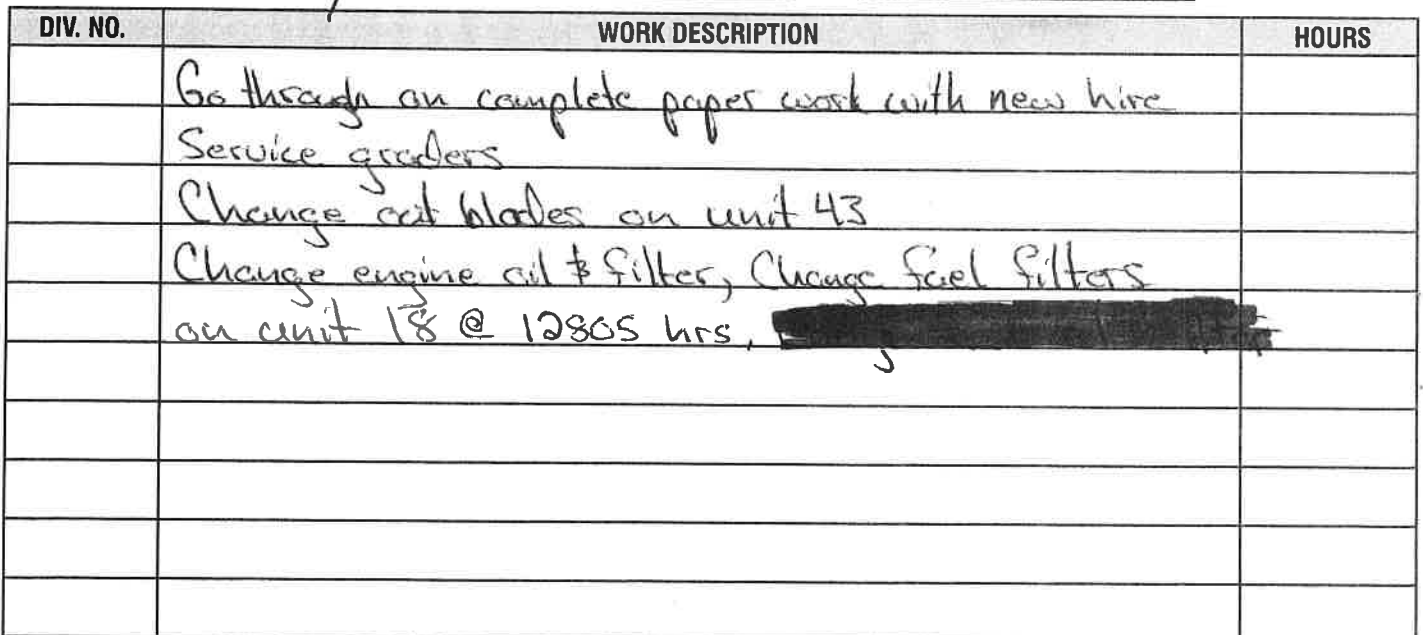 DIV. NO. WORK DESCRIPTION HOURS
Go through an complete paper work with new hire
Service graders
Change cut blades on unit 43
Change engine oil & filter, Change fuel filters
on unit 18 @ 12805 hrs,